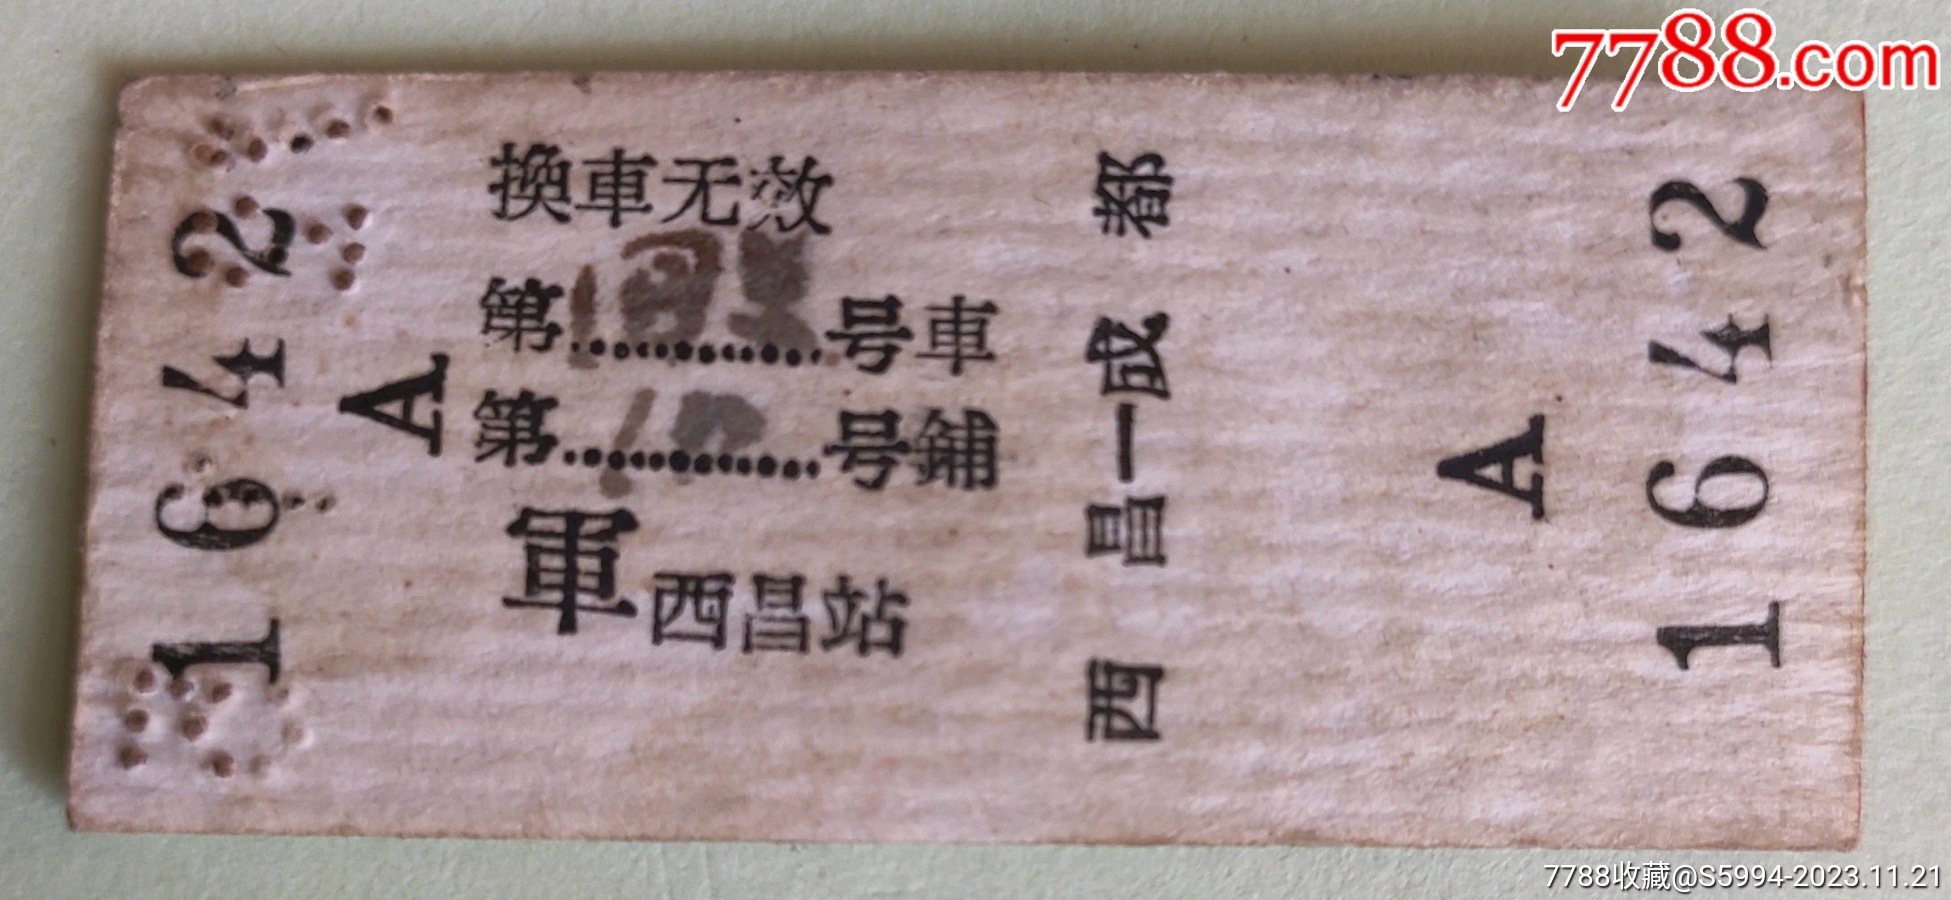 7788.com
1642
A
換車无效
第号車
第号鋪
軍西昌站
西昌—成都
A
1642
7788收藏@S5994-2023.11.21